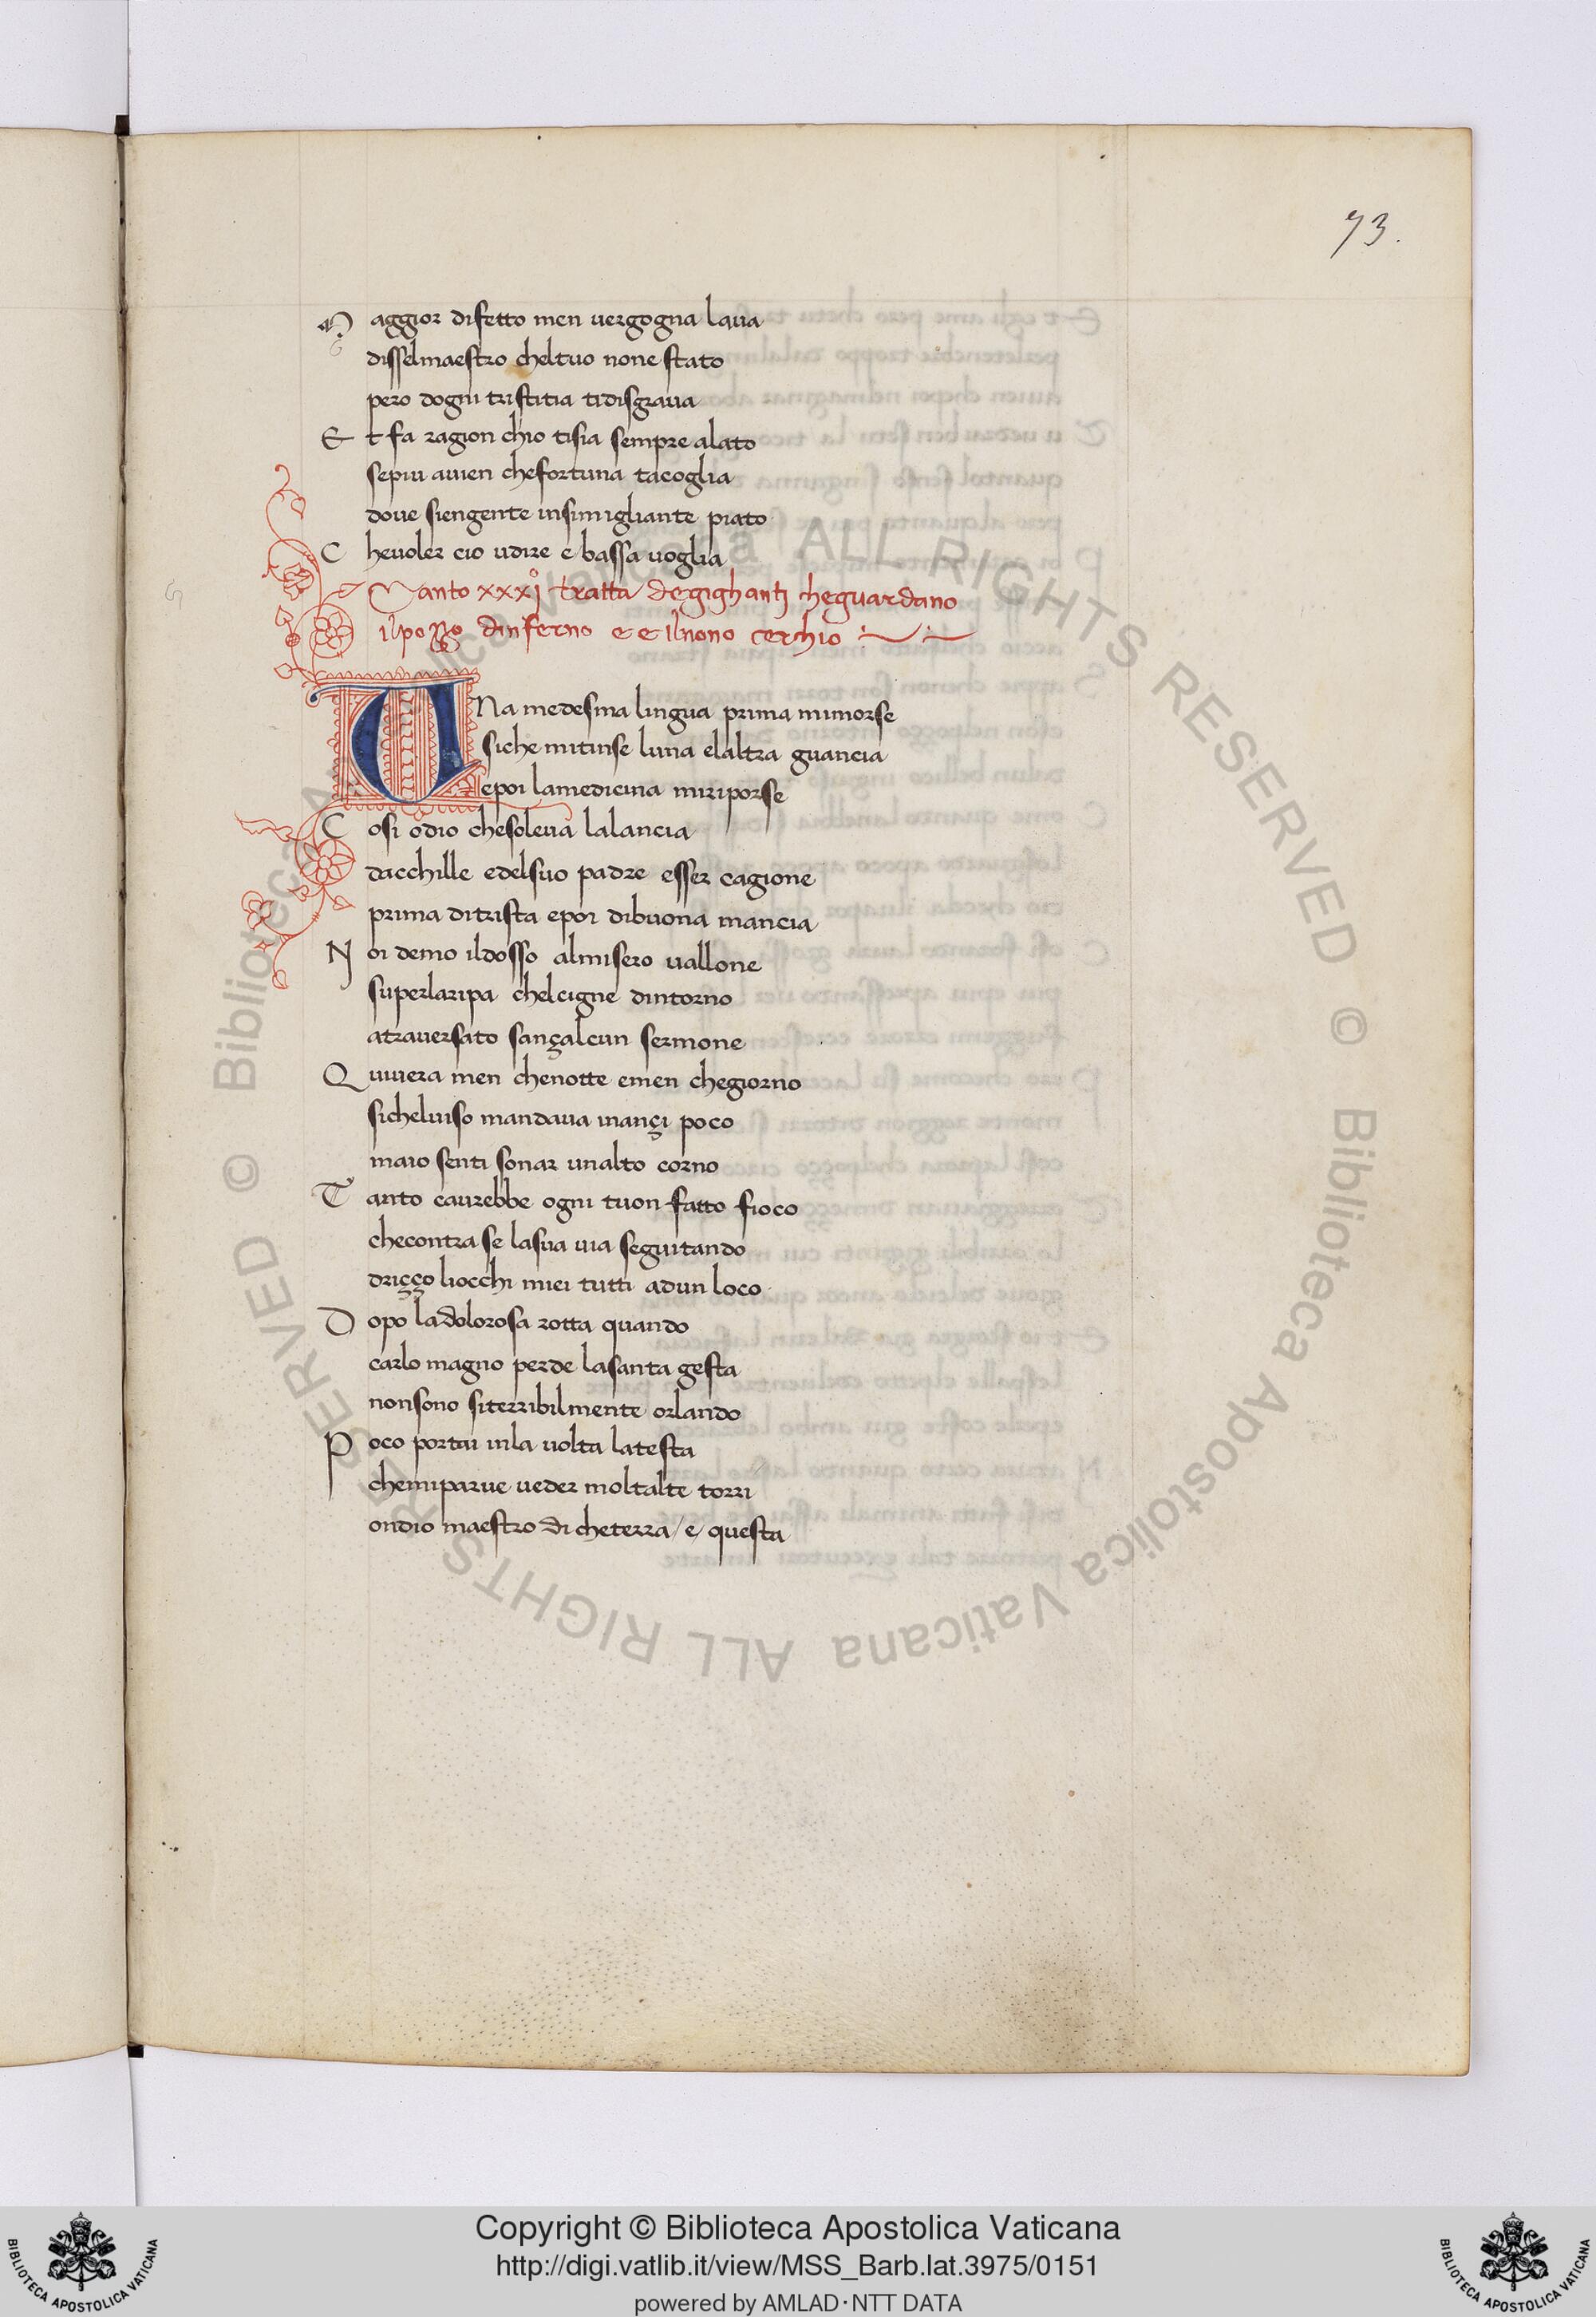 73.
Maggior difetto men uergogna laua
disselmaestro cheltuo none stato
pero dogni tristitia tidisgraua
Et fa ragion chio tisia sempre alato
sepiu auien chefortuna tacoglia
doue siengente insimigliante piato
Cheuoler cio udire e bassa uoglia
Canto xxxjº tratta degighantj cheguardano
ilpozzo dinferno e e ilnono cerchio
UNa medesma lingua prima mimorse
siche mitinse luna elaltra guancia
epoi lamedicina miriporse
Cosi odio chesoleua lalancia
dacchille edelsuo padre esser cagione
prima ditrista epoi dibuona mancia
Noi demo ildosso almisero uallone
superlaripa chelcigne dintorno
atrauersato sançalcun sermone
Quiuera men chenotte emen chegiorno
sicheluiso mandaua inançi poco
maio senti sonar unalto corno
Tanto caurebbe ogni tuon fatto fioco
checontra se lasua uia seguitando
driçço liocchi miei tutti adun loco
Dopo ladolorosa rotta quando
carlo magno perde lasanta gesta
nonsono siterribilmente orlando
Poco portai inla uolta latesta
chemiparue ueder moltalte torri
ondio maestro di cheterra / e / questa
© Biblioteca Apostolica Vaticana ALL RIGHTS RESERVED
© Biblioteca Apostolica Vaticana ALL RIGHTS RESERVED
Copyright © Biblioteca Apostolica Vaticana
http://digi.vatlib.it/view/MSS_Barb.lat.3975/0151
powered by AMLAD·NTT DATA
BIBLIOTECA APOSTOLICA VATICANA
BIBLIOTECA APOSTOLICA VATICANA